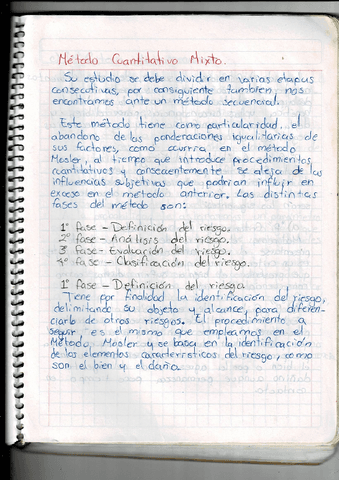 Método Cuantitativo Mixto.
Su estudio se debe dividir en varias etapas
consecutivas, por consiguiente tambien, nos
encontramos ante un método secuencial.
Este método tiene como particularidad.. el
abandono de las ponderaciones igualitarias de
sus factores, como ocurria en el método
Mosler, al tiempo que introduce procedimientos
cuantitativos y consecuentemente se aleja de las
influencias subjetivas que podrian influir en
exceso en el metodo anterior. Las distintas
fases del método son:
1° fase - Definición del riesgo.
2° fase - Análisis del riesgo.
3° fase - Evaluación del riesgo.
4° fase - Clasificación del riesgo.
1° fase - Definición del riesgo
Tiene por finalidad la identificación del riesgo,
delimitando su objeto y alcance, para diferen-
ciarlo de otros riesgos. El procedimiento a
seguir, es el mismo que empleamos en el
Método, Mosler y se basa en la identificación
de los elementos caracteristicos del riesgo, como
son el bien y el daño.